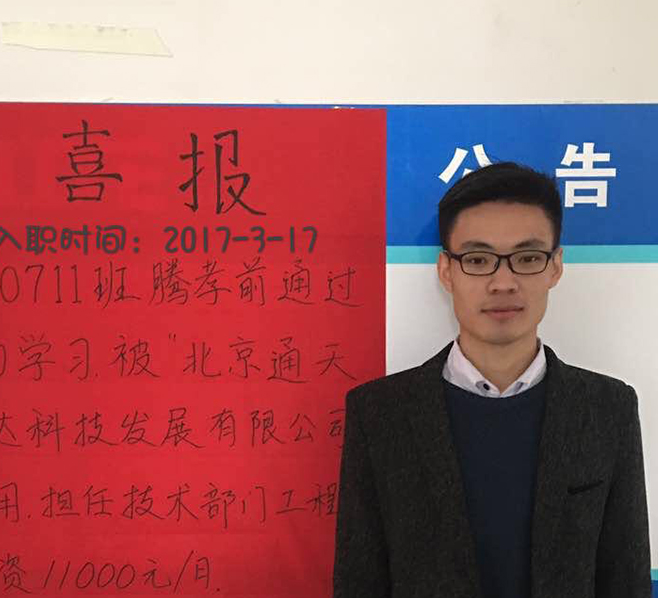 喜报
公告
入职时间：2017-3-17
0711班腾孝前通过
学习,被"北京通天
达科技发展有限公司
用,担任技术部门工程
资11000元/月.